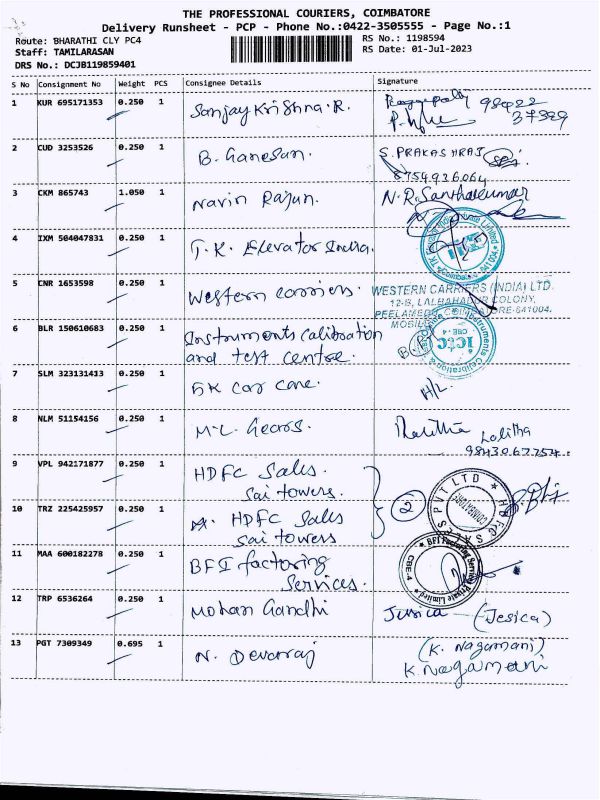 THE PROFESSIONAL COURIERS, COIMBATORE
Delivery Runsheet - PCP - Phone No.:0422-3505555 - Page No.:1
Route: BHARATHI CLY PC4
RS No.: 1198594
Staff: TAMILARASAN
RS Date: 01-Jul-2023
DRS No.: DCJB119859401
S No Consignment No Weight PCS Consignee Details Signature
1 KUR 695171353 0.250 1 Sanjay Krishna.R. 98422
37329
2 CUD 3253526 0.250 1 B. Ganesan. S. PRAKASHRAJ
8754936064
3 CKM 865743 1.050 1 Navin Rajun. N.R. Santhakumar
4 IXM 504047831 0.250 1 T.K. Elevator India.
5 CNR 1653598 0.250 1 Western carriers. WESTERN CARRIERS (INDIA) LTD.
12-B, LALBAHADUR COLONY,
PEELAMEDU, COIMBATORE-641004.
6 BLR 150610683 0.250 1 Instruments calibration
and test centre.
ictc
CBE-4
7 SLM 323131413 0.250 1 5K car care. H/L
8 NLM 51154156 0.250 1 M.L. Gears. Lalitha
9843067754
9 VPL 942171877 0.250 1 HDFC Sales.
Sai towers.
2
10 TRZ 225425957 0.250 1 HDFC Sales
Sai towers
11 MAA 600182278 0.250 1 BFI factoring
Services.
CBE-4
12 TRP 6536264 0.250 1 Mohan Gandhi Jesica (Jesica)
13 PGT 7309349 0.695 1 N. Devaraj (K. Nagamani)
K Nagamani